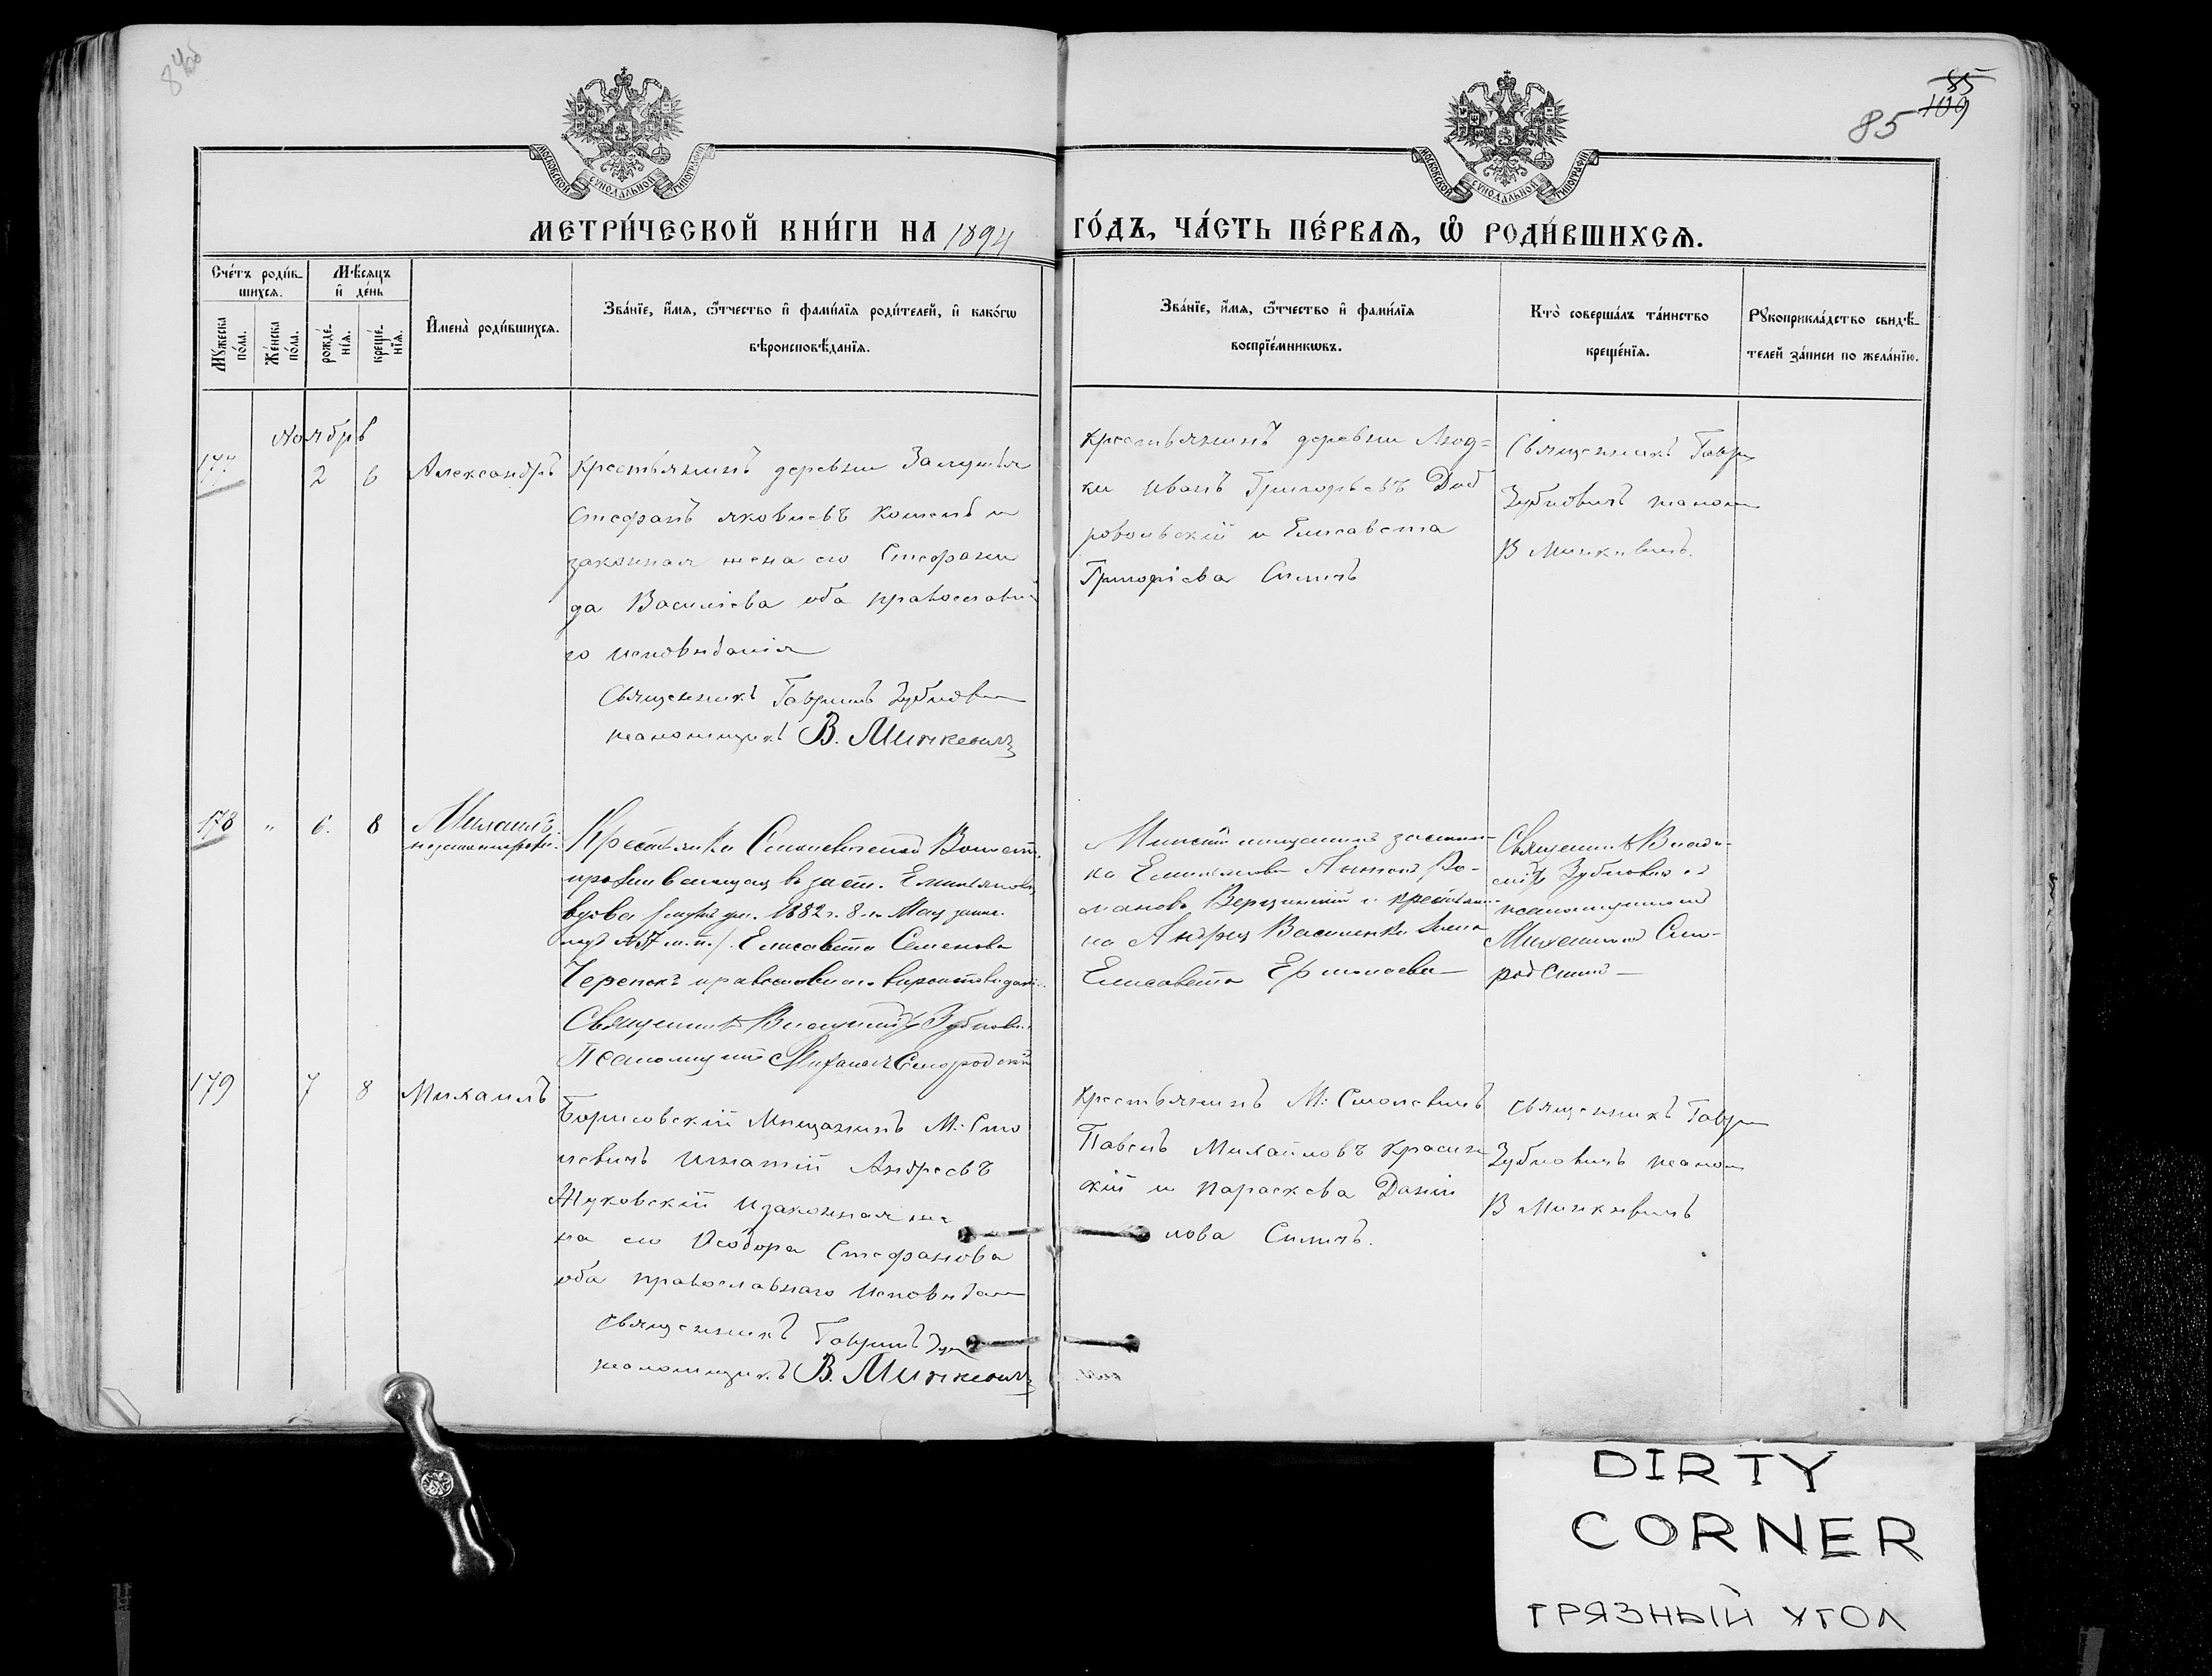 85
85
109
МОСКОВСКОЙ СУНОДАЛЬНОЙ ТИПОГРАФІИ
МОСКОВСКОЙ СУНОДАЛЬНОЙ ТИПОГРАФІИ
МЕТРИ́ЧЕСКОЙ КНИ́ГИ НА 1894 ГО́ДЪ, ЧА́СТЬ ПЕ́РВАѦ, Ѡ҆ РОДИ́ВШИХСѦ.
Сче́тъ роди́в-
шихсѧ.
Мꙋ́жеска по́ла.
Же́нска по́ла.
Мѣ́сѧцъ
и҆ де́нь
рожде́-
нїѧ.
креще́-
нїѧ.
И҆мена̀ роди́вшихсѧ.
Зва́нїе, и҆́мѧ, ѻ҆́тчество и҆ фами́лїѧ роди́телей, и҆ како́гѡ
вѣроисповѣ́данїѧ.
Зва́нїе, и҆́мѧ, ѻ҆́тчество и҆ фами́лїѧ
воспрїе́мникѡвъ.
Кто̀ соверша́лъ та́инство
креще́нїѧ.
Рꙋкоприкла́дство свидѣ́-
телей за́писи по жела́нїю.
Ноябрь
177
2 6
Александръ
Крестьянинъ деревни
Стефанъ Яковлевъ
законная жена его Стефани
да Василіева оба православна
го исповѣданія
Священникъ Гавріилъ Зубкови
псаломщикъ В. Минкевичъ
Крестьянинъ деревни Люд=
ки Иванъ Григорьевъ Доб
ровольскій и Елисавета
Григоріева
Священникъ Гаврі
Зубковичъ псалом
В Минкевичъ
178 " 6. 8
Михаилъ
Крестьянка Смолевичской Волости
проживающая въ заст.
вдова (мужъ ум. 1882 г. 8-го Мая
Елисавета Семенова
православнаго вѣроисповѣдані
Священникъ Зубкови
Псаломщикъ Михаилъ
Минскій мѣщанинъ застѣн-
ка Антонъ Ро-
мановъ и крестьяни-
на Андрея Василевки жена
Елисавета Ермолаева
Священникъ Влади-
міръ Зубковичъ съ
псаломщикомъ
Михаиломъ
179 7 8
Михаилъ
Борисовскій Мѣщанинъ М: Смо
левичъ Игнатій Андреевъ
Жуковскій и законная же
на его Ѳеодора Стефанова
оба православнаго исповѣдан
священникъ Гавріилъ Зуб
псаломщикъ В. Минкевичъ
Крестьянинъ М: Смолевичъ
Павелъ Михайловъ
скій и Параскева Даніи
лова
священникъ Гаврі
Зубковичъ псалом
В Минкевичъ
DIRTY
CORNER
ГРЯЗНЫЙ УГОЛ